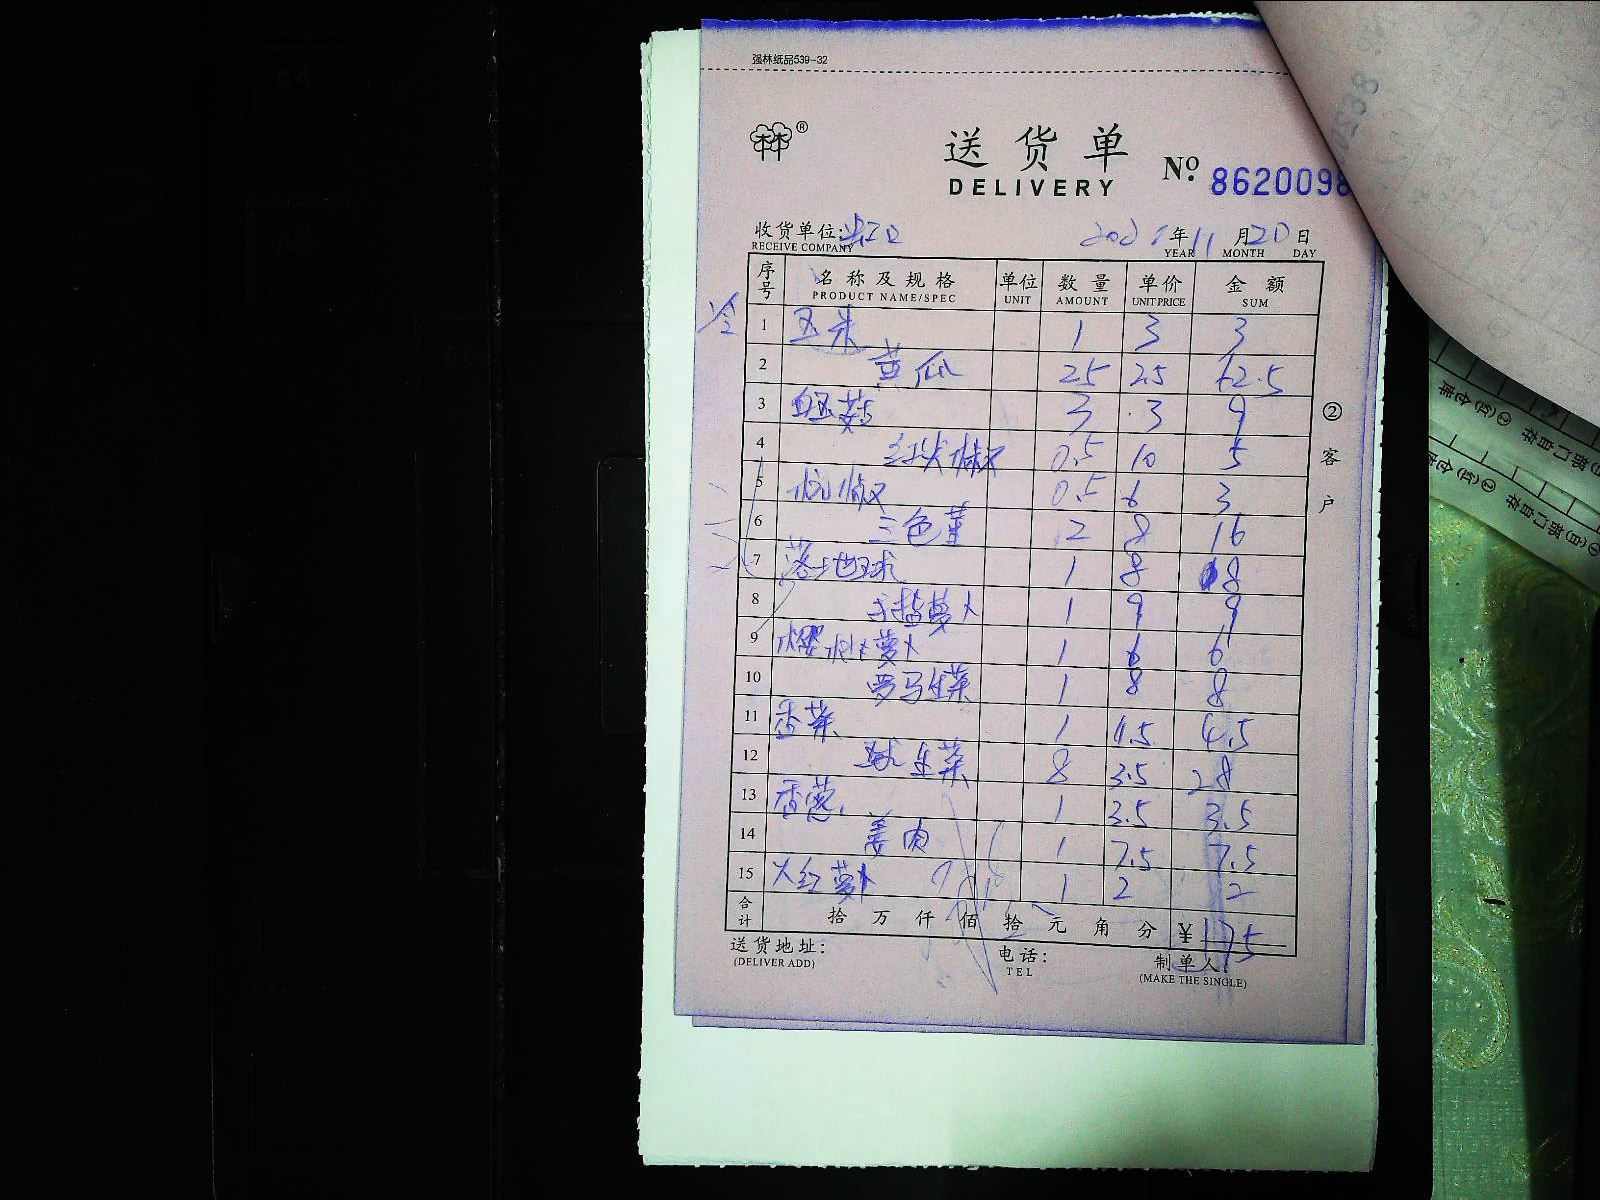 强林纸品539-32
林林®
送货单 No. 8620098
DELIVERY
收货单位: 2021年11月20日
RECEIVE COMPANY YEAR MONTH DAY
序号 名称及规格 单位 数量 单价 金额
PRODUCT NAME/SPEC UNIT AMOUNT UNIT PRICE SUM
冷
1 玉米 1 3 3
2 黄瓜 25 2.5 62.5
3 3 3 9
4 红尖椒 0.5 10 5
5 杭椒 0.5 6 3
6 三色堇 2 8 16
7 1 8 8
8 手指萝卜 1 9 9
9 樱桃萝卜 1 6 6
10 罗马生菜 1 8 8
11 香菜 1 4.5 4.5
12 球生菜 8 3.5 28
13 香葱 1 3.5 3.5
14 姜肉 1 7.5 7.5
15 大红萝卜 1 2 2
合计 拾万仟佰拾元角分 ¥175
送货地址: 电话: 制单人:
(DELIVER ADD) TEL (MAKE THE SINGLE)
②客户